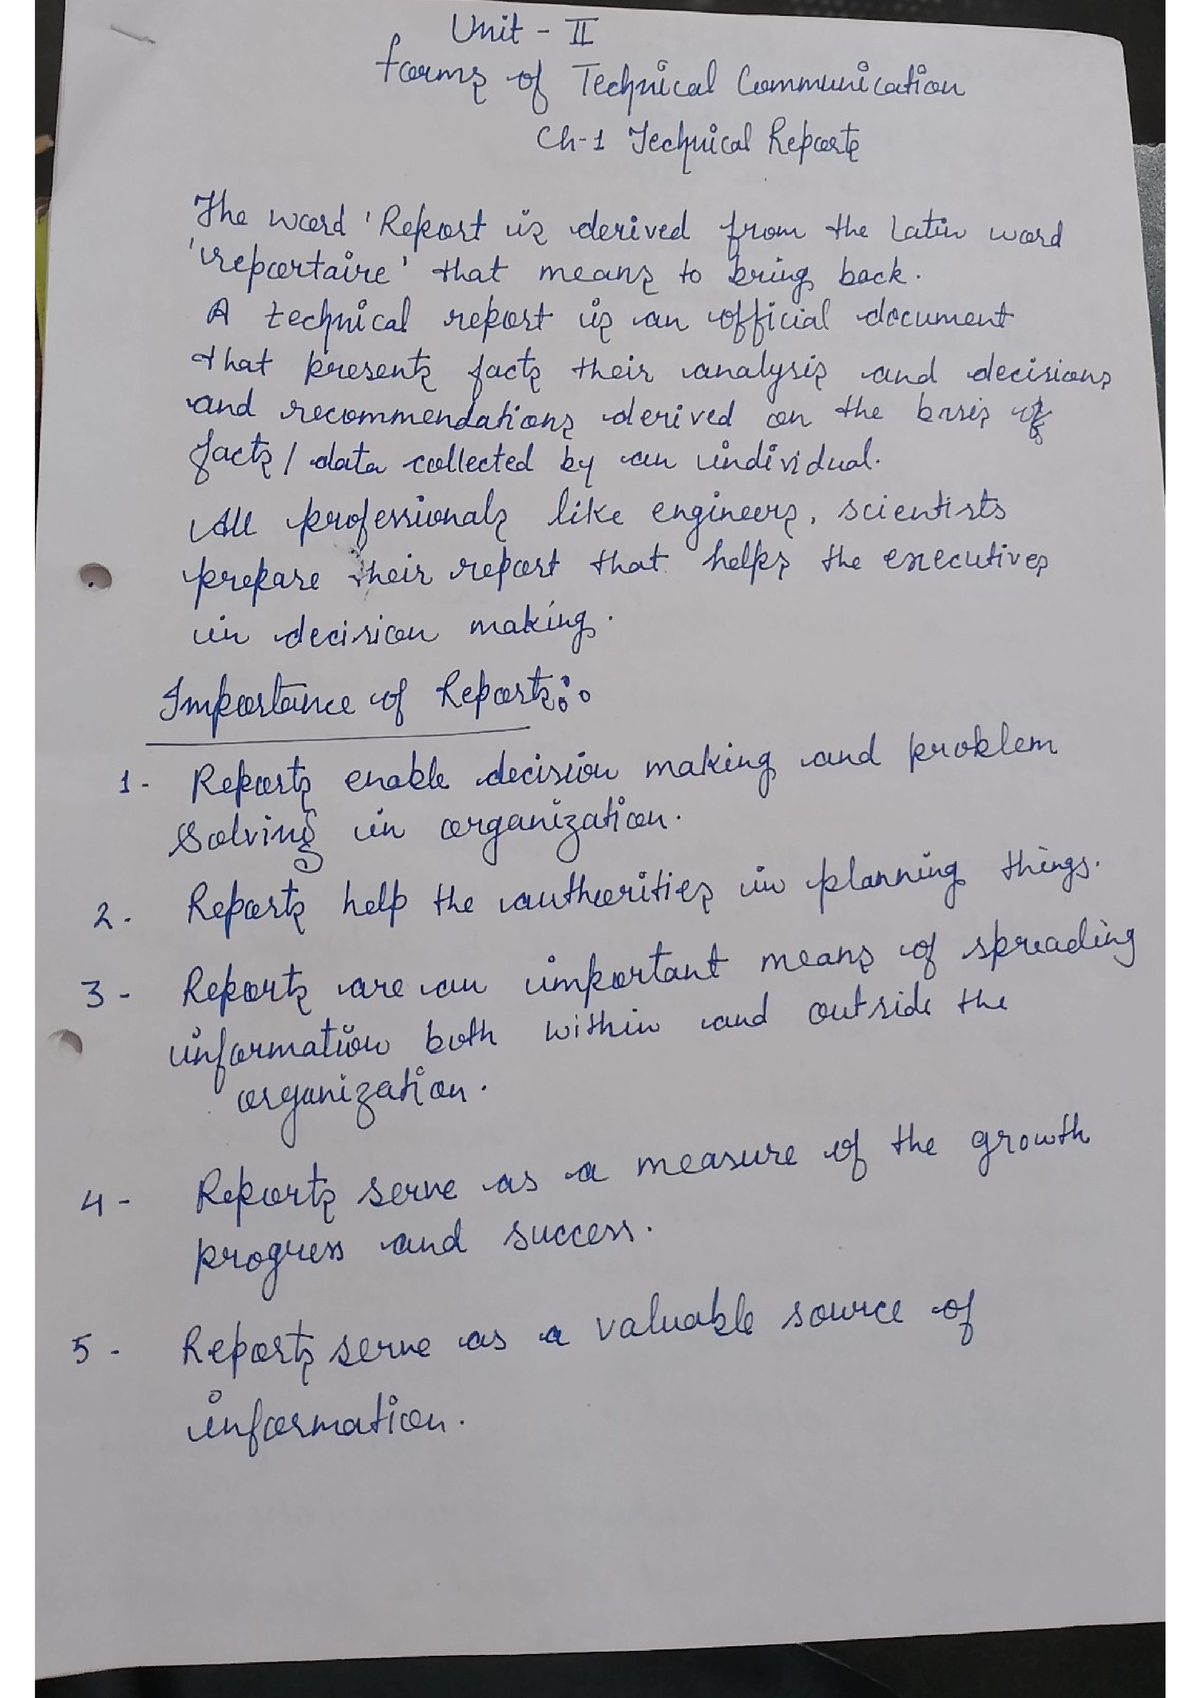 Unit - II
Forms of Technical Communication
Ch-1 Technical Reports
The word 'Report is derived from the Latin word
'reportaire' that means to bring back.
A technical report is an official document
that presents facts their analysis and decisions
and recommendations derived on the basis of
facts / data collected by an individual.
All professionals like engineers, scientists
prepare their report that helps the executives
in decision making.
Importance of Reports:
1- Reports enable decision making and problem
solving in organization.
2. Reports help the authorities in planning things.
3- Reports are an important means of spreading
information both within and outside the
organization.
4- Reports serve as a measure of the growth
progress and success.
5- Reports serve as a valuable source of
information.